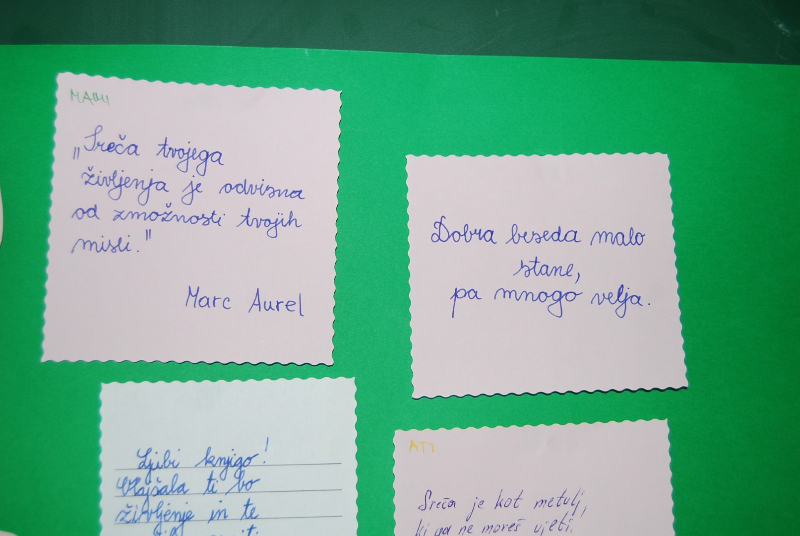 „Sreča tvojega
življenja je odvisna
od zmožnosti tvojih
misli."
Marc Aurel
Dobra beseda malo
stane,
pa mnogo velja.
Ljubi knjigo!
Olajšala ti bo
življenje in te
ATI
Sreča je kot metulj,
ki ga ne moreš ujeti.